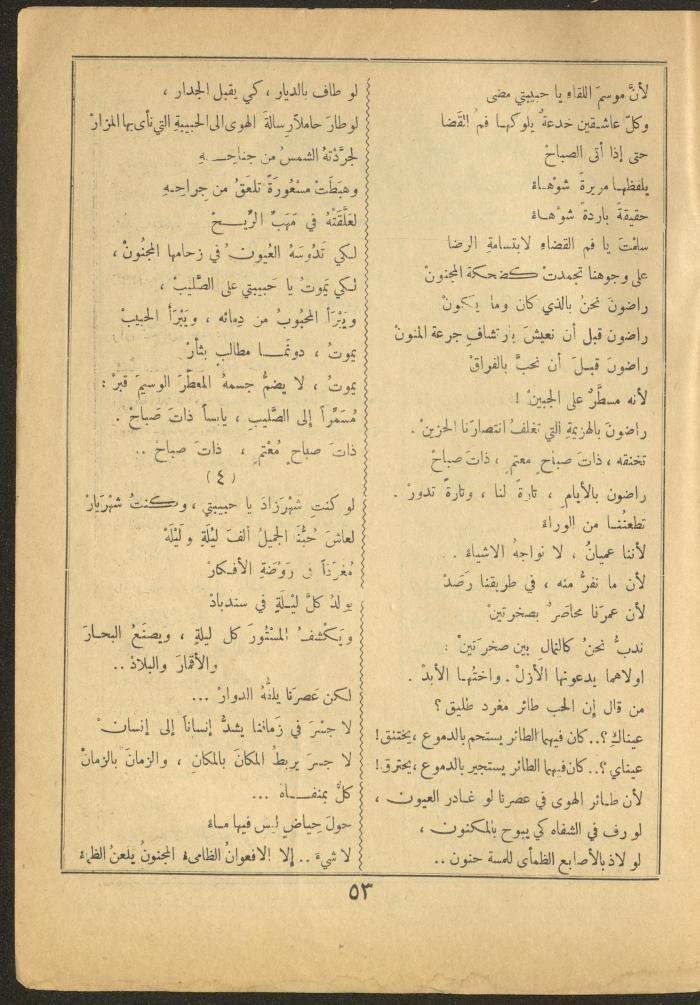 لأنَّ موسمَ اللقاءِ يا حبيبتي مضى
وكلّ عاشقين خدعةٌ يلوكها فمُ القَضا
حتى إذا أتى الصباحْ
يلفظها مريرةً شوْهاءْ
حقيقةً باردةً شوْهاءْ
سلمْتَ يا فم القضاءِ لابتسامةِ الرضا
على وجوهنا تجمدتْ كضحكة المجنونْ
راضونَ نحنُ بالذي كان وما يكونْ
راضون قبل أن نعيشَ بارتشافِ جرعة المنونْ
راضونَ قبلَ أن نحبَّ بالفراقْ
لأنه مسطَّرٌ على الجبينْ !
راضونَ بالهزيمةِ التي تغلفُ انتصارَنا الحزينْ .
تخنقه ، ذاتَ صباحٍ معتمٍ ، ذاتَ صباحْ
راضون بالأيامِ ، تارةً لنا ، وتارةً تدورْ .
تطعنُنا من الوراءْ
لأننا عميانُ ، لا نواجهُ الاشياءْ ..
لأن ما نفرُّ منه ، في طريقنا رَصَدْ
لأن عمرَنا محاصَرٌ بصخرتينْ
ندبُّ نحنُ كالنمالِ بين صخرتينْ :
اولاهما يدعونها الأزلْ . واختُها الأبدْ .
من قال إن الحب طائر مغرد طليق ؟
عيناكِ ؟.. كان فيهما الطائر يستحم بالدموع ، يختنق !
عيناي ؟.. كان فيهما الطائر يستجير بالدموع ، يحترق !
لأن طائر الهوى في عصرنا لو غادر العيون ،
لو رف في الشفاه كي يبوح بالمكنون ،
لو لاذ بالأصابع الظمأى للمسة حنون ..
لو طاف بالديار ، كي يقبل الجدار ،
لو طارَ حاملاً رسالةَ الهوى الى الحبيبةِ التي نأى بها المزارْ
لجرَّدَتْهُ الشمسُ من جناحِهِ
وهبَطَتْ مسْعُورَةً تلعَقُ من جِراحِهِ
لعَلَّقَتْهُ في مَهَبِّ الرِّيحْ
لكي تَدُوسَهُ العُيونُ في زحامها المجنُونْ ،
لكي يَموتُ يا حَبيبتي على الصَّليبْ ،
ويَبْرَأ المحْبُوبُ من دِمائه ، ويَبْرَأ الحبيبْ
يموتُ ، دونَما مطالبٍ بثأرْ
يموتُ ، لا يضمُّ جسمهُ المعَطَّرَ الوسيمَ قبرْ :
مُسَمَّراً إلى الصَّليبِ ، يابساً ذاتَ صَباحْ .
ذاتَ صباحٍ مُعْتمٍ ، ذاتَ صباحْ ..
(٤)
لو كنتِ شَهْرَزادَ يا حبيبتي ، وكنتُ شهْرَيارْ
لعاشَ حُبُّنا الجميلُ ألفَ لَيْلَةٍ ولَيْلَهْ
مُغرّداً في رَوْضَةِ الأفكارْ
يولدُ كلَّ ليْلةٍ في سندبادْ
ويَكْشفُ المسْتُورَ كل ليلةٍ ، ويصنَعُ البحارَ
والأقمَارَ والبلادْ ..
لكن عَصرَنا يلفُّهُ الدوارْ ...
لا جسْرَ في زَماننا يشدُّ إنساناً إلى إنسانْ
لا جسرَ يربطُ المكانَ بالمكانِ ، والزمانَ بالزمانْ
كلٌّ بمنفَاهْ ...
حولَ حِياضٍ ليسَ فيها ماءْ
لا شيءَ .. إلا الافعوانُ الظامىءُ المجنونُ يلعنُ الظماءْ
٥٣